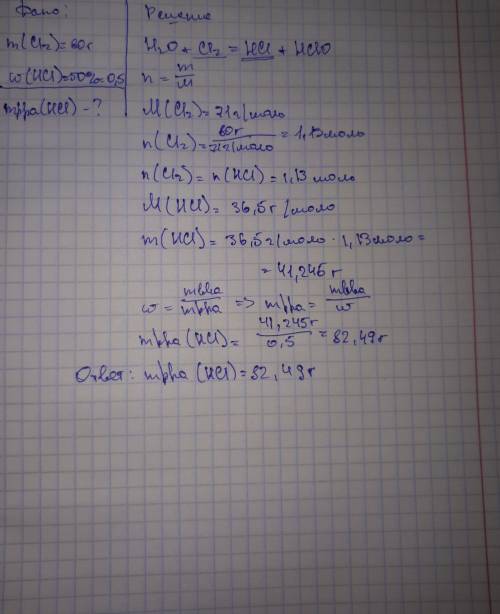 Дано:
m(Cl₂)=80г
w(HCl)=50%=0,5
mрра(HCl) - ?
Решение
H₂O + Cl₂ = HCl + HClO
n = m/M
M(Cl₂)= 71г/моль
n(Cl₂)= 80г/71г/моль = 1,13моль
n(Cl₂) = n(HCl) = 1,13 моль
M(HCl) = 36,5г/моль
m(HCl) = 36,5г/моль · 1,13моль =
= 41,245 г
w = mвва/mрра => mрра = mвва/w
mрра (HCl) = 41,245г/0,5 = 82,49г
Ответ: mрра (HCl) = 82,49г